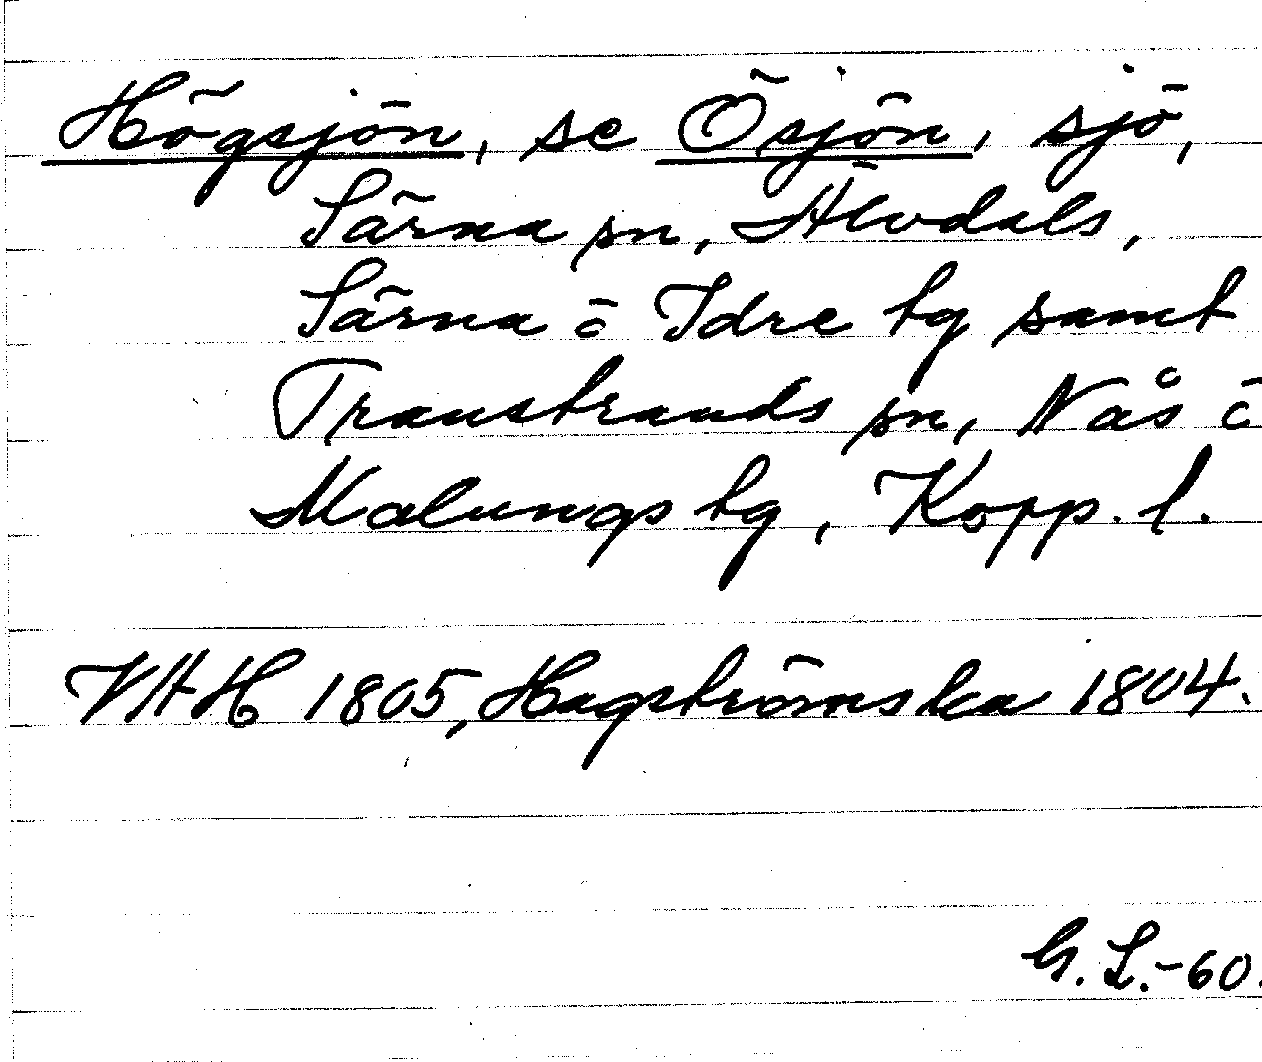 Högsjön, se Ösjön, sjö,
Särna sn, Älvdals,
Särna o Idre tg samt
Transtrands sn, Nås o
Malungs tg, Kopp. l.
VAH 1805, Hagströmska 1804.
G. L.-60.